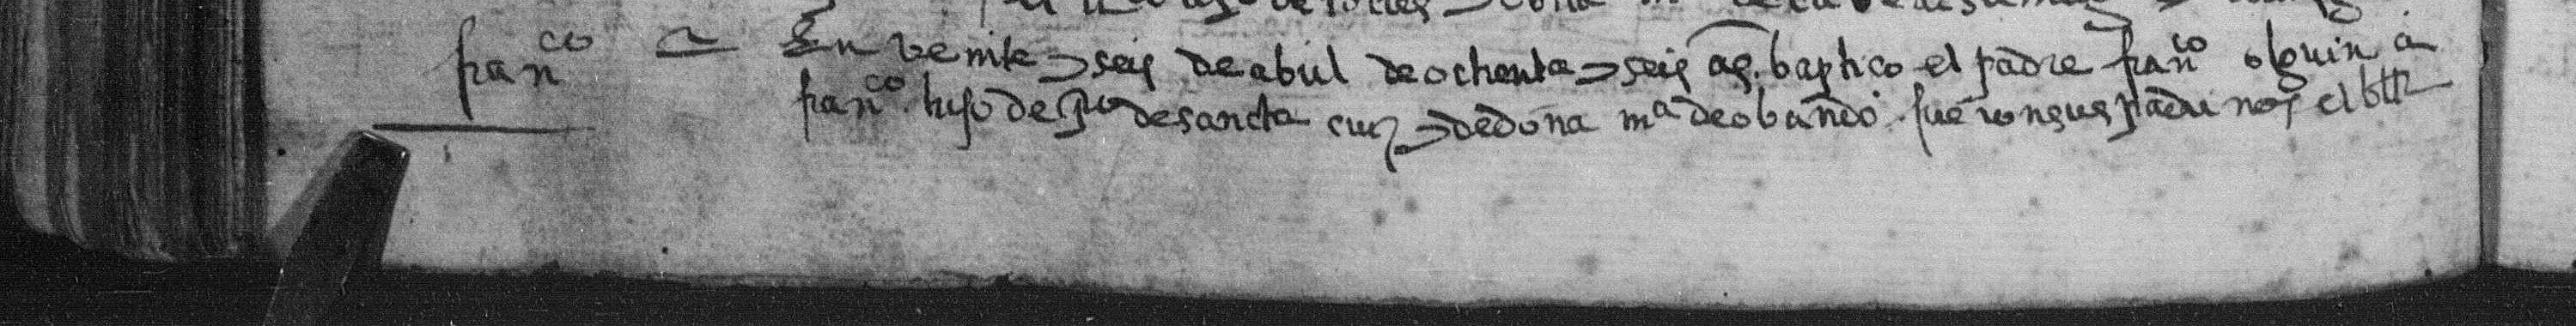 franco
En veinte y seis de abril de ochenta y seis aos. baptico el padre franco olguin a
franco. hijo de Juo de sancta cruz y de dona ma de obando. fueron sus padrinos el bllr